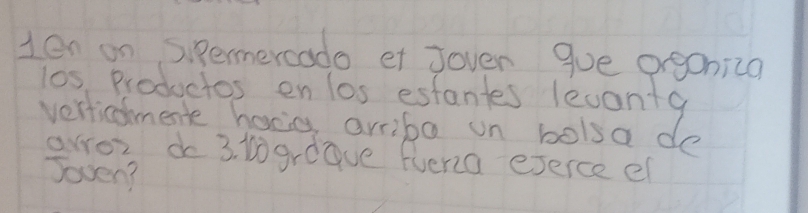 1En un Supermercado et Joven que organiza
los Productos en los estantes levanta
verticalmente hacia arriba un bolsa de
arroz de 3.100gr¿que fuerza eJerce el
Joven?